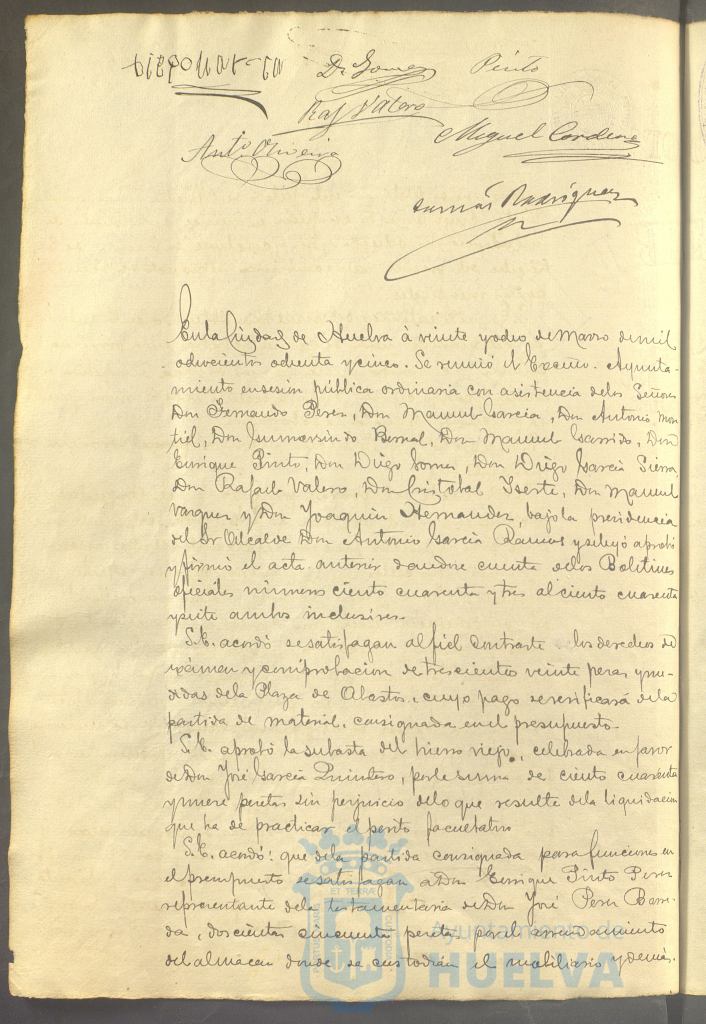 Diego Garcia
D. Gomez Pinto
Raf Valero
Miguel Cordero
Antº Oliveira
Tomás Rodriguez
En la Ciudad de Huelva á veinte y ocho de Marzo de mil
ochocientos ochenta y cinco. Se reunió el Excmo. Ayunta-
miento en sesión pública ordinaria con asistencia de los Señores
Don Fernando Perez, Don Manuel Garcia, Don Antonio Mon
tiel, Don Gumersindo Bernal, Don Manuel Garrido, Don
Enrique Pinto, Don Diego Gomez, Don Diego García Sierra,
Don Rafael Valero, Don Cristobal Iserte, Don Manuel
Vazquez y Don Joaquin Hernandez, bajo la presidencia
del Sr Alcalde Don Antonio García Ramos y se leyó aprobó
y firmó el acta anterior dandose cuenta de los Boletines
oficiales números ciento cuarenta y tres al ciento cuarenta
y siete ambos inclusives.
S.E. acordó se satisfagan al fiel contraste los derechos de
exámen y comprobacion de trescientos veinte pesas y me
didas de la Plaza de Abastos, cuyo pago se verificará de la
partida de material, consignada en el presupuesto.
S.E. aprobó la subasta del hierro viejo, celebrada en favor
de Don José García Quintero, por la suma de ciento cuarenta
y nueve pesetas sin perjuicio de lo que resulte de la liquidacion
que ha de practicar el perito facultativo
S.E. acordó: que de la partida consignada para funciones en
el presupuesto se satisfagan a Don Enrique Pinto Perez
representante de la testamentaria de Don José Perez Barre-
da, doscientas cincuenta pesetas por el arrendamiento
del almacen donde se custodian el mobiliario y demás.
Ayuntamiento de
HUELVA